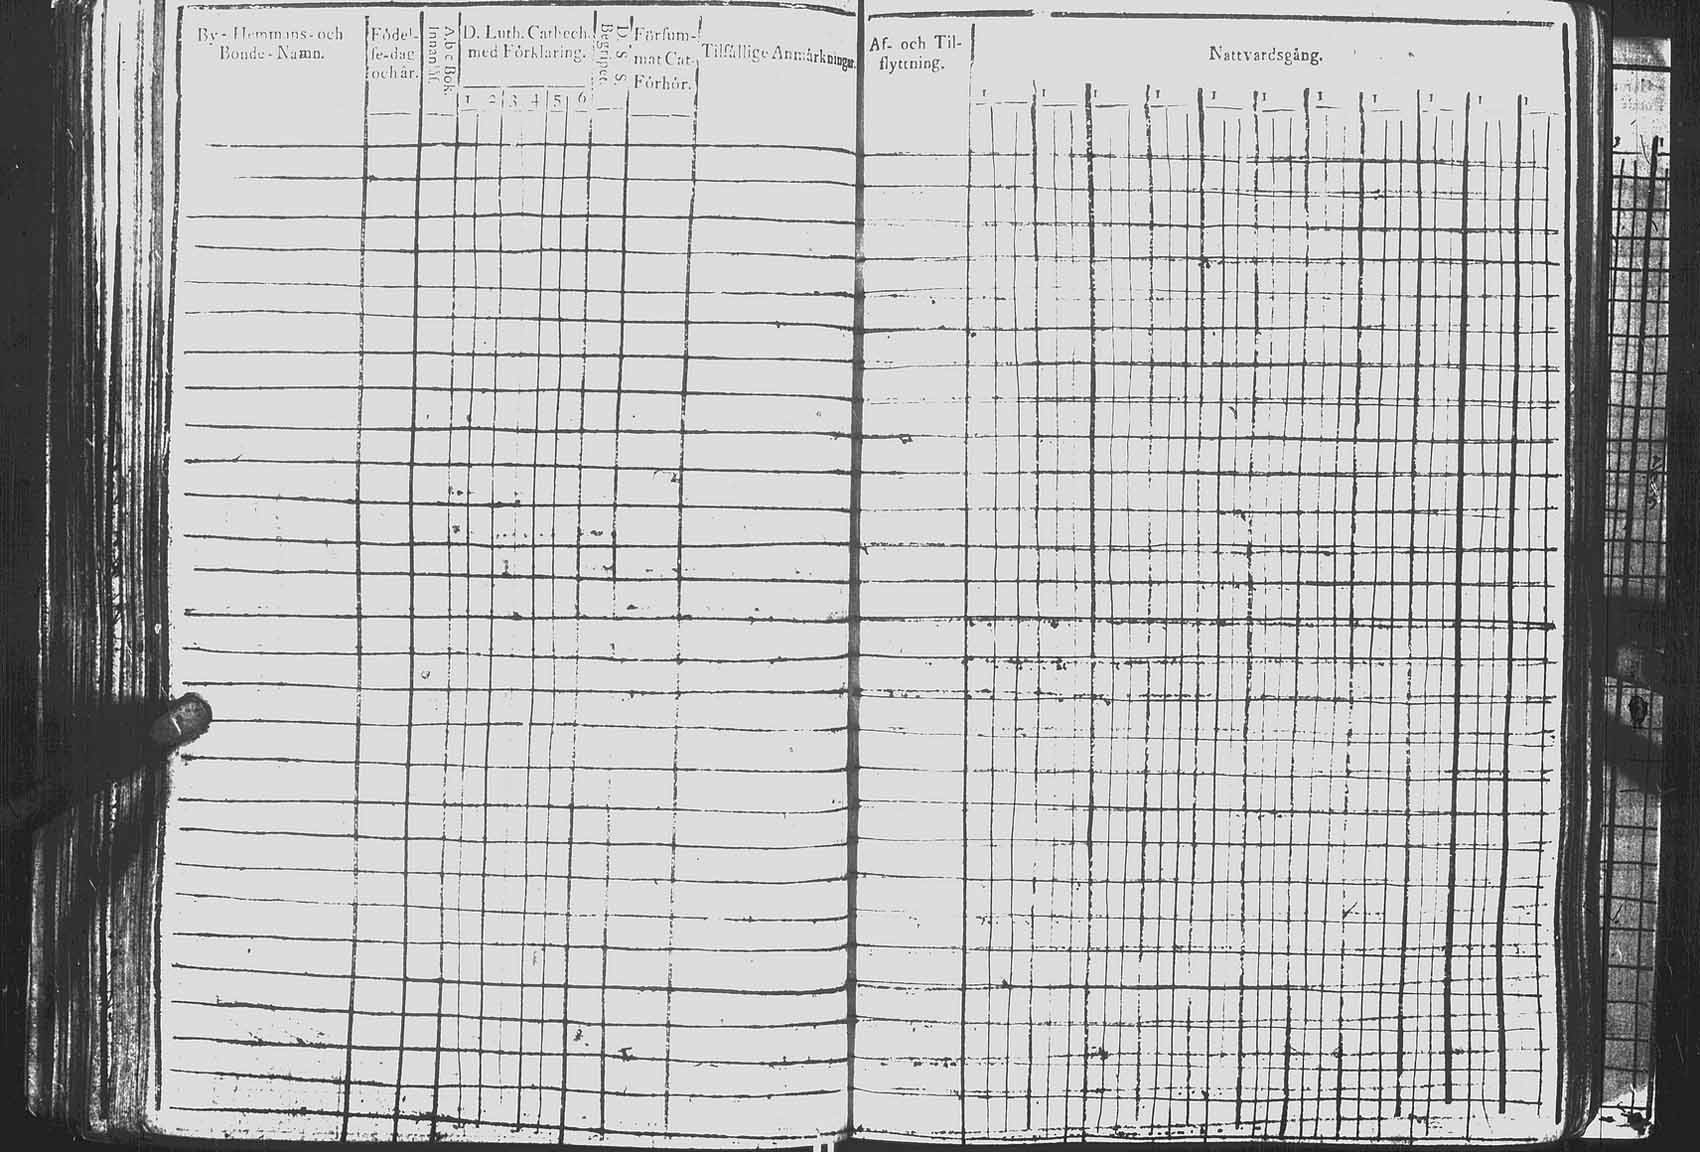 By- Hemmans- och
Bonde-Namn.
Födel-
se-dag
och år.
A b c Bok
Innan til.
D. Luth. Cathech.
med Förklaring.
1 2 3 4 5 6
D. S. S.
Begripet.
Försum-
mat Cat-
Förhör.
Tilfällige Anmärkningar.
Af- och Til-
flyttning.
Nattvardsgång.
1 1 1 1 1 1 1 1 1 1 1